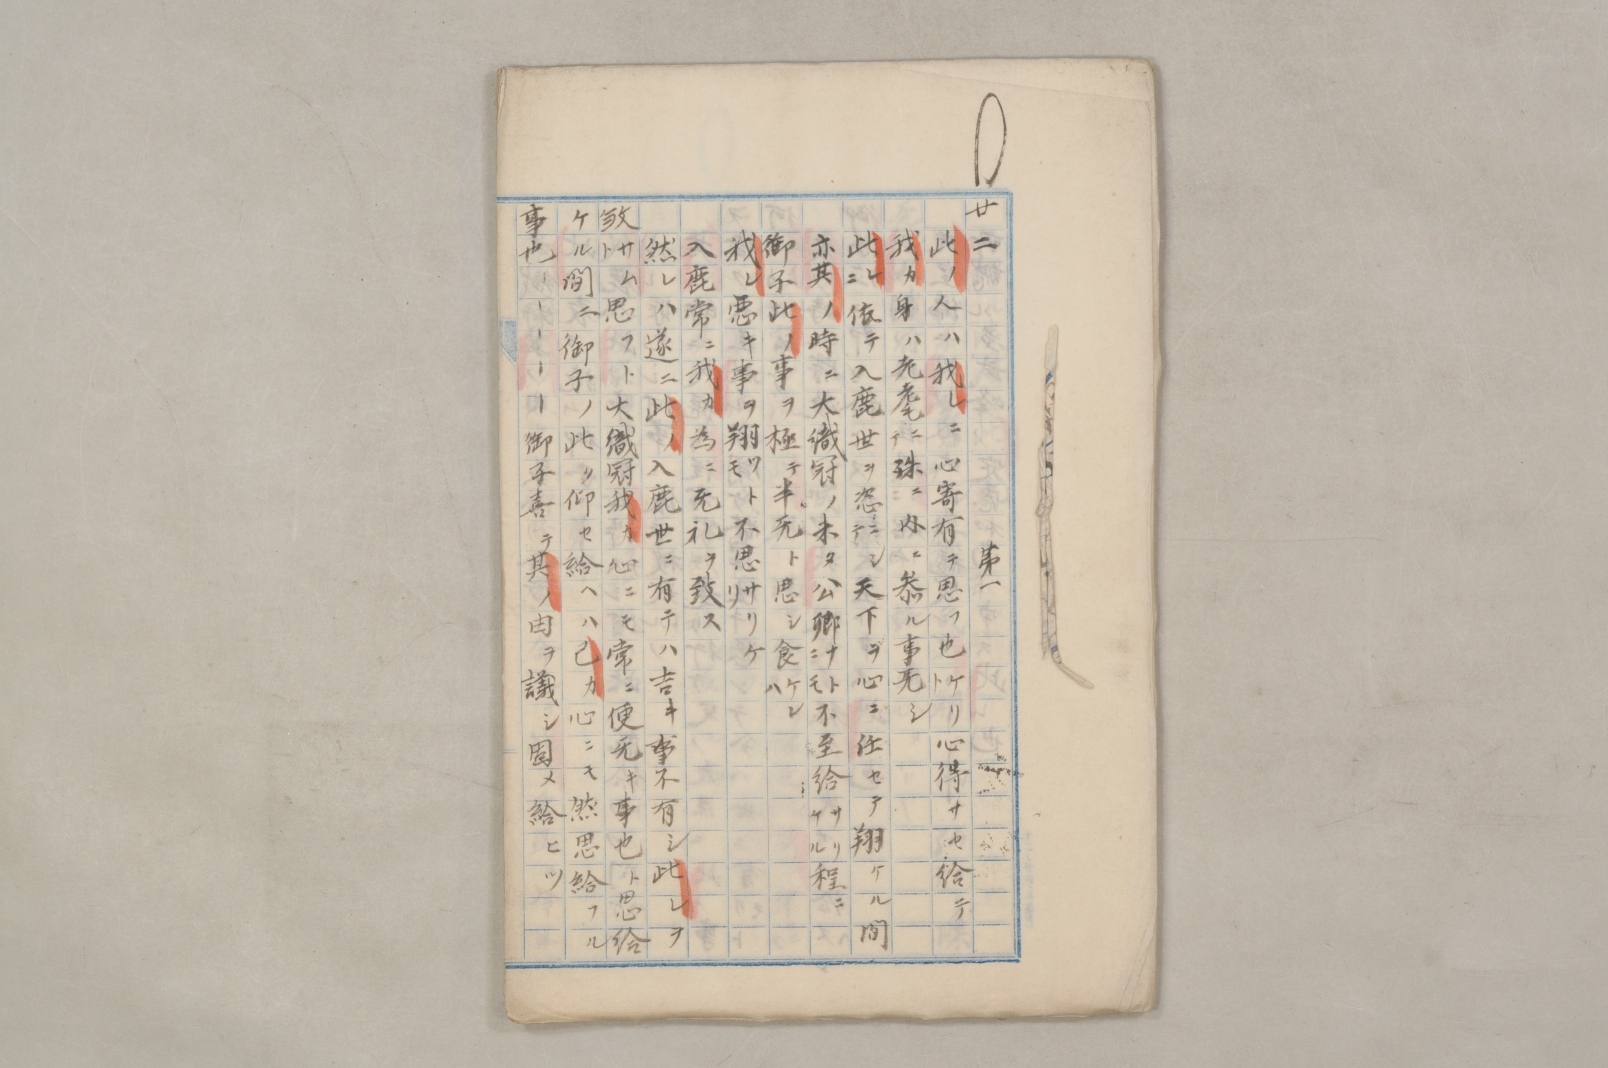 廿二 第一
此ノ人ハ我レニ心寄有テ思フ也ケリト心得サセ給テ
我カ身ハ老耄ニテ殊ニ内ニ参ル事无シ
此レニ依テ入鹿世ヲ恣ニシテ天下ヲ心ニ任セテ翔ケル間
亦其ノ時ニ大織冠ノ未タ公卿ナトニモ不至給サリケル程ニ
御子此ノ事ヲ極テ半无ト思シ食ケレハ
我レ悪キ事ヲ翔ツトモ不思サリケリ
入鹿常ニ我カ為ニ无礼ヲ致ス
然レハ遂ニ此ノ入鹿世ニ有テハ吉キ事不有シ此レヲ
敓サムト思フト大織冠我カ心ニモ常ニ便无キ事也ト思給
ケル間ニ御子ノ此ク仰セ給ヘハ己カ心ニモ然思給フル
事也ーーーーー御子喜テ其ノ由ヲ議シ固メ給ヒツ